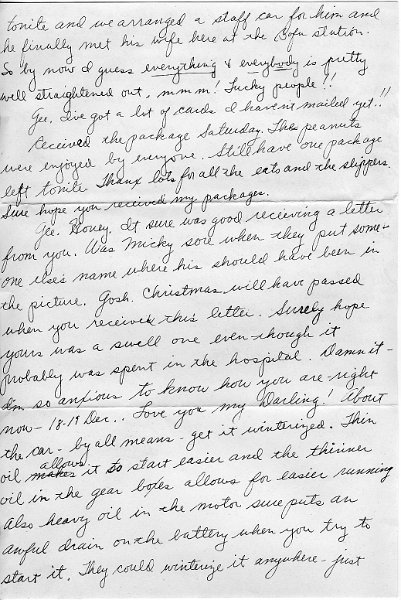 tonite and we arranged a staff car for him and
he finally met his wife here at the Cofu station.
So by now I guess everything & everybody is pretty
well straightened out, mmm! Lucky people!!
Gee, I've got a lot of cards I havent mailed yet!!
Received the package Saturday. The peanuts
were enjoyed by everyone. Still have one package
left tonite Thanx lots for all the eats and the slippers.
Sure hope you received my packages.
Gee. Honey, It sure was good recieving a letter
from you. Was Micky sore when they put some-
one else's name where his should have been in
the picture. Gosh. Christmas will have passed
when you receive this letter. Surely hope
yours was a swell one even though it
probably was spent in the hospital. Damn it -
I'm so anxious to know how you are right
now - 18-19 Dec... Love you my Darling! About
the car - by all means - get it winterized. Thin
oil allows it to start easier and the thinner
oil in the gear boxes allows for easier running
also heavy oil in the motor sure puts an
awful drain on the battery when you try to
start it. They could winterize it anywhere - just